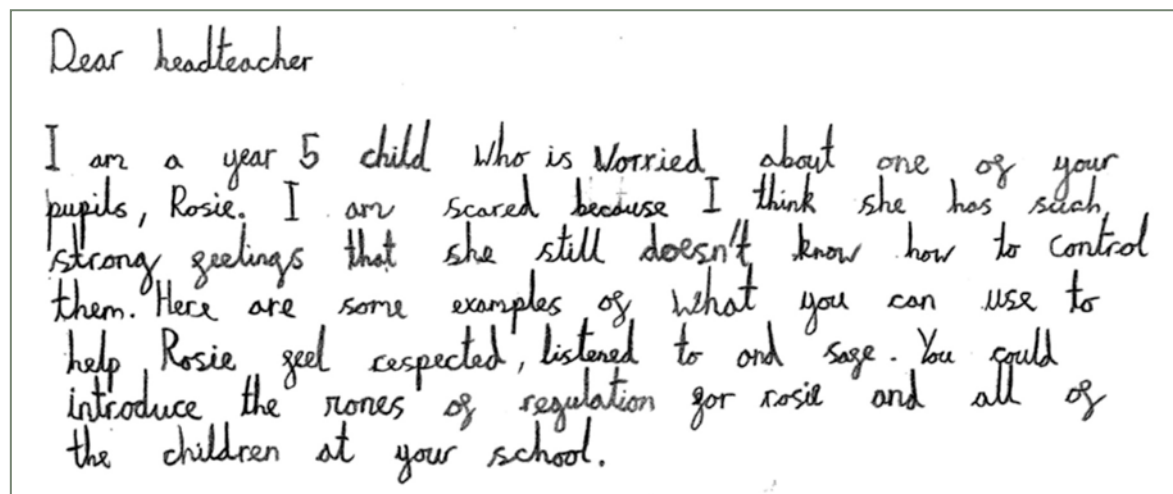 Dear headteacher
I am a year 5 child who is Worried about one of your
pupils, Rosie. I am scared because I think she has such
strong feelings that she still doesn't know how to control
them. Here are some examples of what you can use to
help Rosie feel respected, listened to and safe. You could
introduce the zones of regulation for rosie and all of
the children at your school.